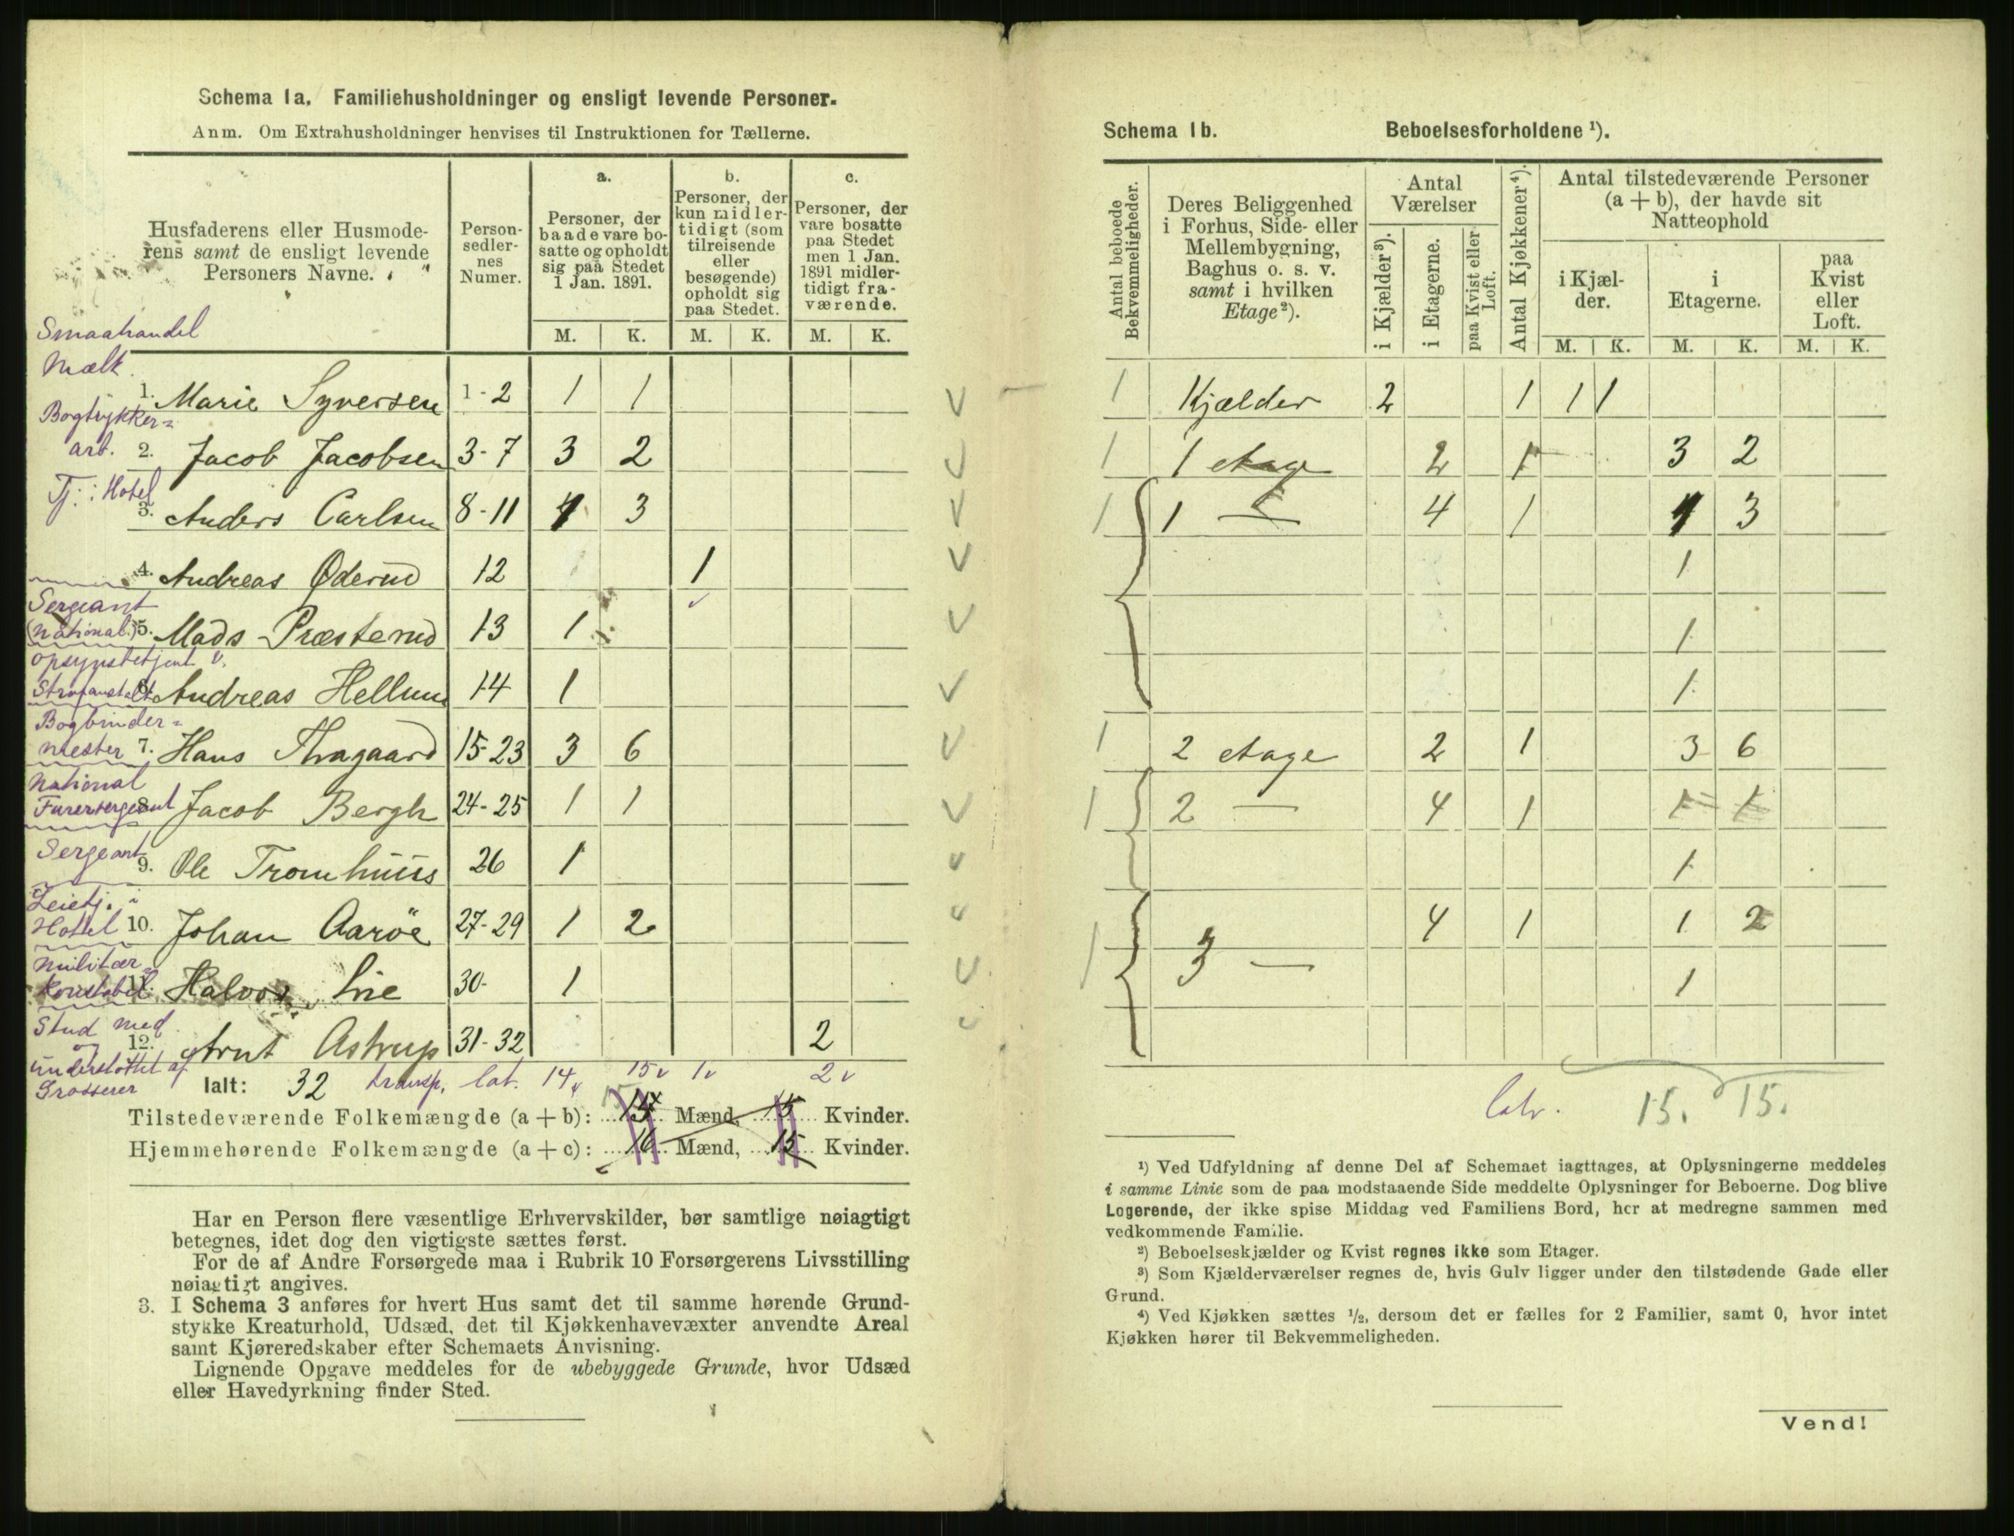 Schema 1a. Familiehusholdninger og ensligt levende Personer.
Anm. Om Extrahusholdninger henvises til Instruktionen for Tællerne.
Husfaderens eller Husmoderens samt de ensligt levende Personers Navne.
Person-sedler-nes Numer.
a. Personer, der baade vare bosatte og opholdt sig paa Stedet 1 Jan. 1891.
b. Personer, der kun midlertidigt (som tilreisende eller besøgende) opholdt sig paa Stedet.
c. Personer, der vare bosatte paa Stedet men 1 Jan. 1891 midlertidigt fraværende.
M. K. M. K. M. K.
Smaahandel
Mælk.
1. Marie Syversen 1-2 1 1
Bogtrykker=
arb. 2. Jacob Jacobsen 3-7 3 2
Tj. i Hotel
3. Anders Carlsen 8-11 1 3
4. Andreas Øderud 12 1
Sergeant
(National.) 5. Mads Præsterud 13 1
Opsynstetjent v.
Strafanstalt 6. Andreas Hellum 14 1
Bogbinder=
mester 7. Hans Thragaard 15-23 3 6
National
Furersergeant 8. Jacob Bergh 24-25 1 1
Sergeant
9. Ole Tromhuus 26 1
Leietj. i
Hotel 10. Johan Aarøe 27-29 1 2
Militær
Konstabel 11. Halvor Lie 30 1
Stud med.
og 12. Arnt Astrup 31-32 2
understøttet af
Grosserer
Ialt: 32 transp. lat. 14 15 1 2
Tilstedeværende Folkemængde (a + b): 15 Mænd, 15 Kvinder.
Hjemmehørende Folkemængde (a + c): 16 Mænd, 15 Kvinder.
Har en Person flere væsentlige Erhvervskilder, bør samtlige nøiagtigt
betegnes, idet dog den vigtigste sættes først.
For de af Andre Forsørgede maa i Rubrik 10 Forsørgerens Livsstilling
nøiagtigt angives.
3. I Schema 3 anføres for hvert Hus samt det til samme hørende Grund-
stykke Kreaturhold, Udsæd, det til Kjøkkenhavevæxter anvendte Areal
samt Kjøreredskaber efter Schemaets Anvisning.
Lignende Opgave meddeles for de ubebyggede Grunde, hvor Udsæd
eller Havedyrkning finder Sted.
Schema 1b. Beboelsesforholdene ¹).
Antal beboede Bekvemmeligheder.
Deres Beliggenhed i Forhus, Side- eller Mellembygning, Baghus o. s. v. samt i hvilken Etage ²).
Antal Værelser
i Kjælder ³).
i Etagerne.
paa Kvist eller Loft.
Antal Kjøkkener ⁴).
Antal tilstedeværende Personer (a + b), der havde sit Natteophold
i Kjælder.
i Etagerne.
paa Kvist eller Loft.
M. K. M. K. M. K.
1 Kjælder 2 1 1 1
1 1 etage 2 1 3 2
1 1 — 4 1 1 3
1
1
1
1 2 etage 2 1 3 6
1 2 — 4 1 1 1
1
1 3 — 4 1 1 2
1
latr. 15. 15.
¹) Ved Udfyldning af denne Del af Schemaet iagttages, at Oplysningerne meddeles
i samme Linie som de paa modstaaende Side meddelte Oplysninger for Beboerne. Dog blive
Logerende, der ikke spise Middag ved Familiens Bord, her at medregne sammen med
vedkommende Familie.
²) Beboelseskjælder og Kvist regnes ikke som Etager.
³) Som Kjælderværelser regnes de, hvis Gulv ligger under den tilstødende Gade eller
Grund.
⁴) Ved Kjøkken sættes ½, dersom det er fælles for 2 Familier, samt 0, hvor intet
Kjøkken hører til Bekvemmeligheden.
Vend!